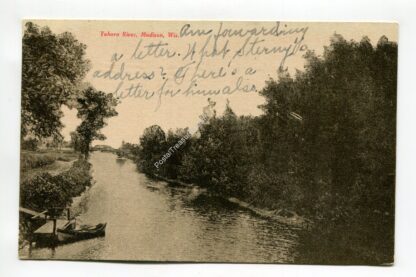 Yahara River, Madison, Wis.
Am forwarding
a letter. What Sterny's
address? There's a
letter for him also.
PostalTreasures